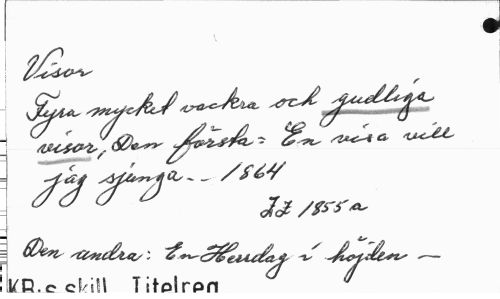 Visor
Fyra mycket vackra och gudliga
visor, Den första = En visa vill
jag sjunga. - 1864
ZZ 1855 a
Den andra: En Herrdag i höjden -
KB:s skill. Titelreg